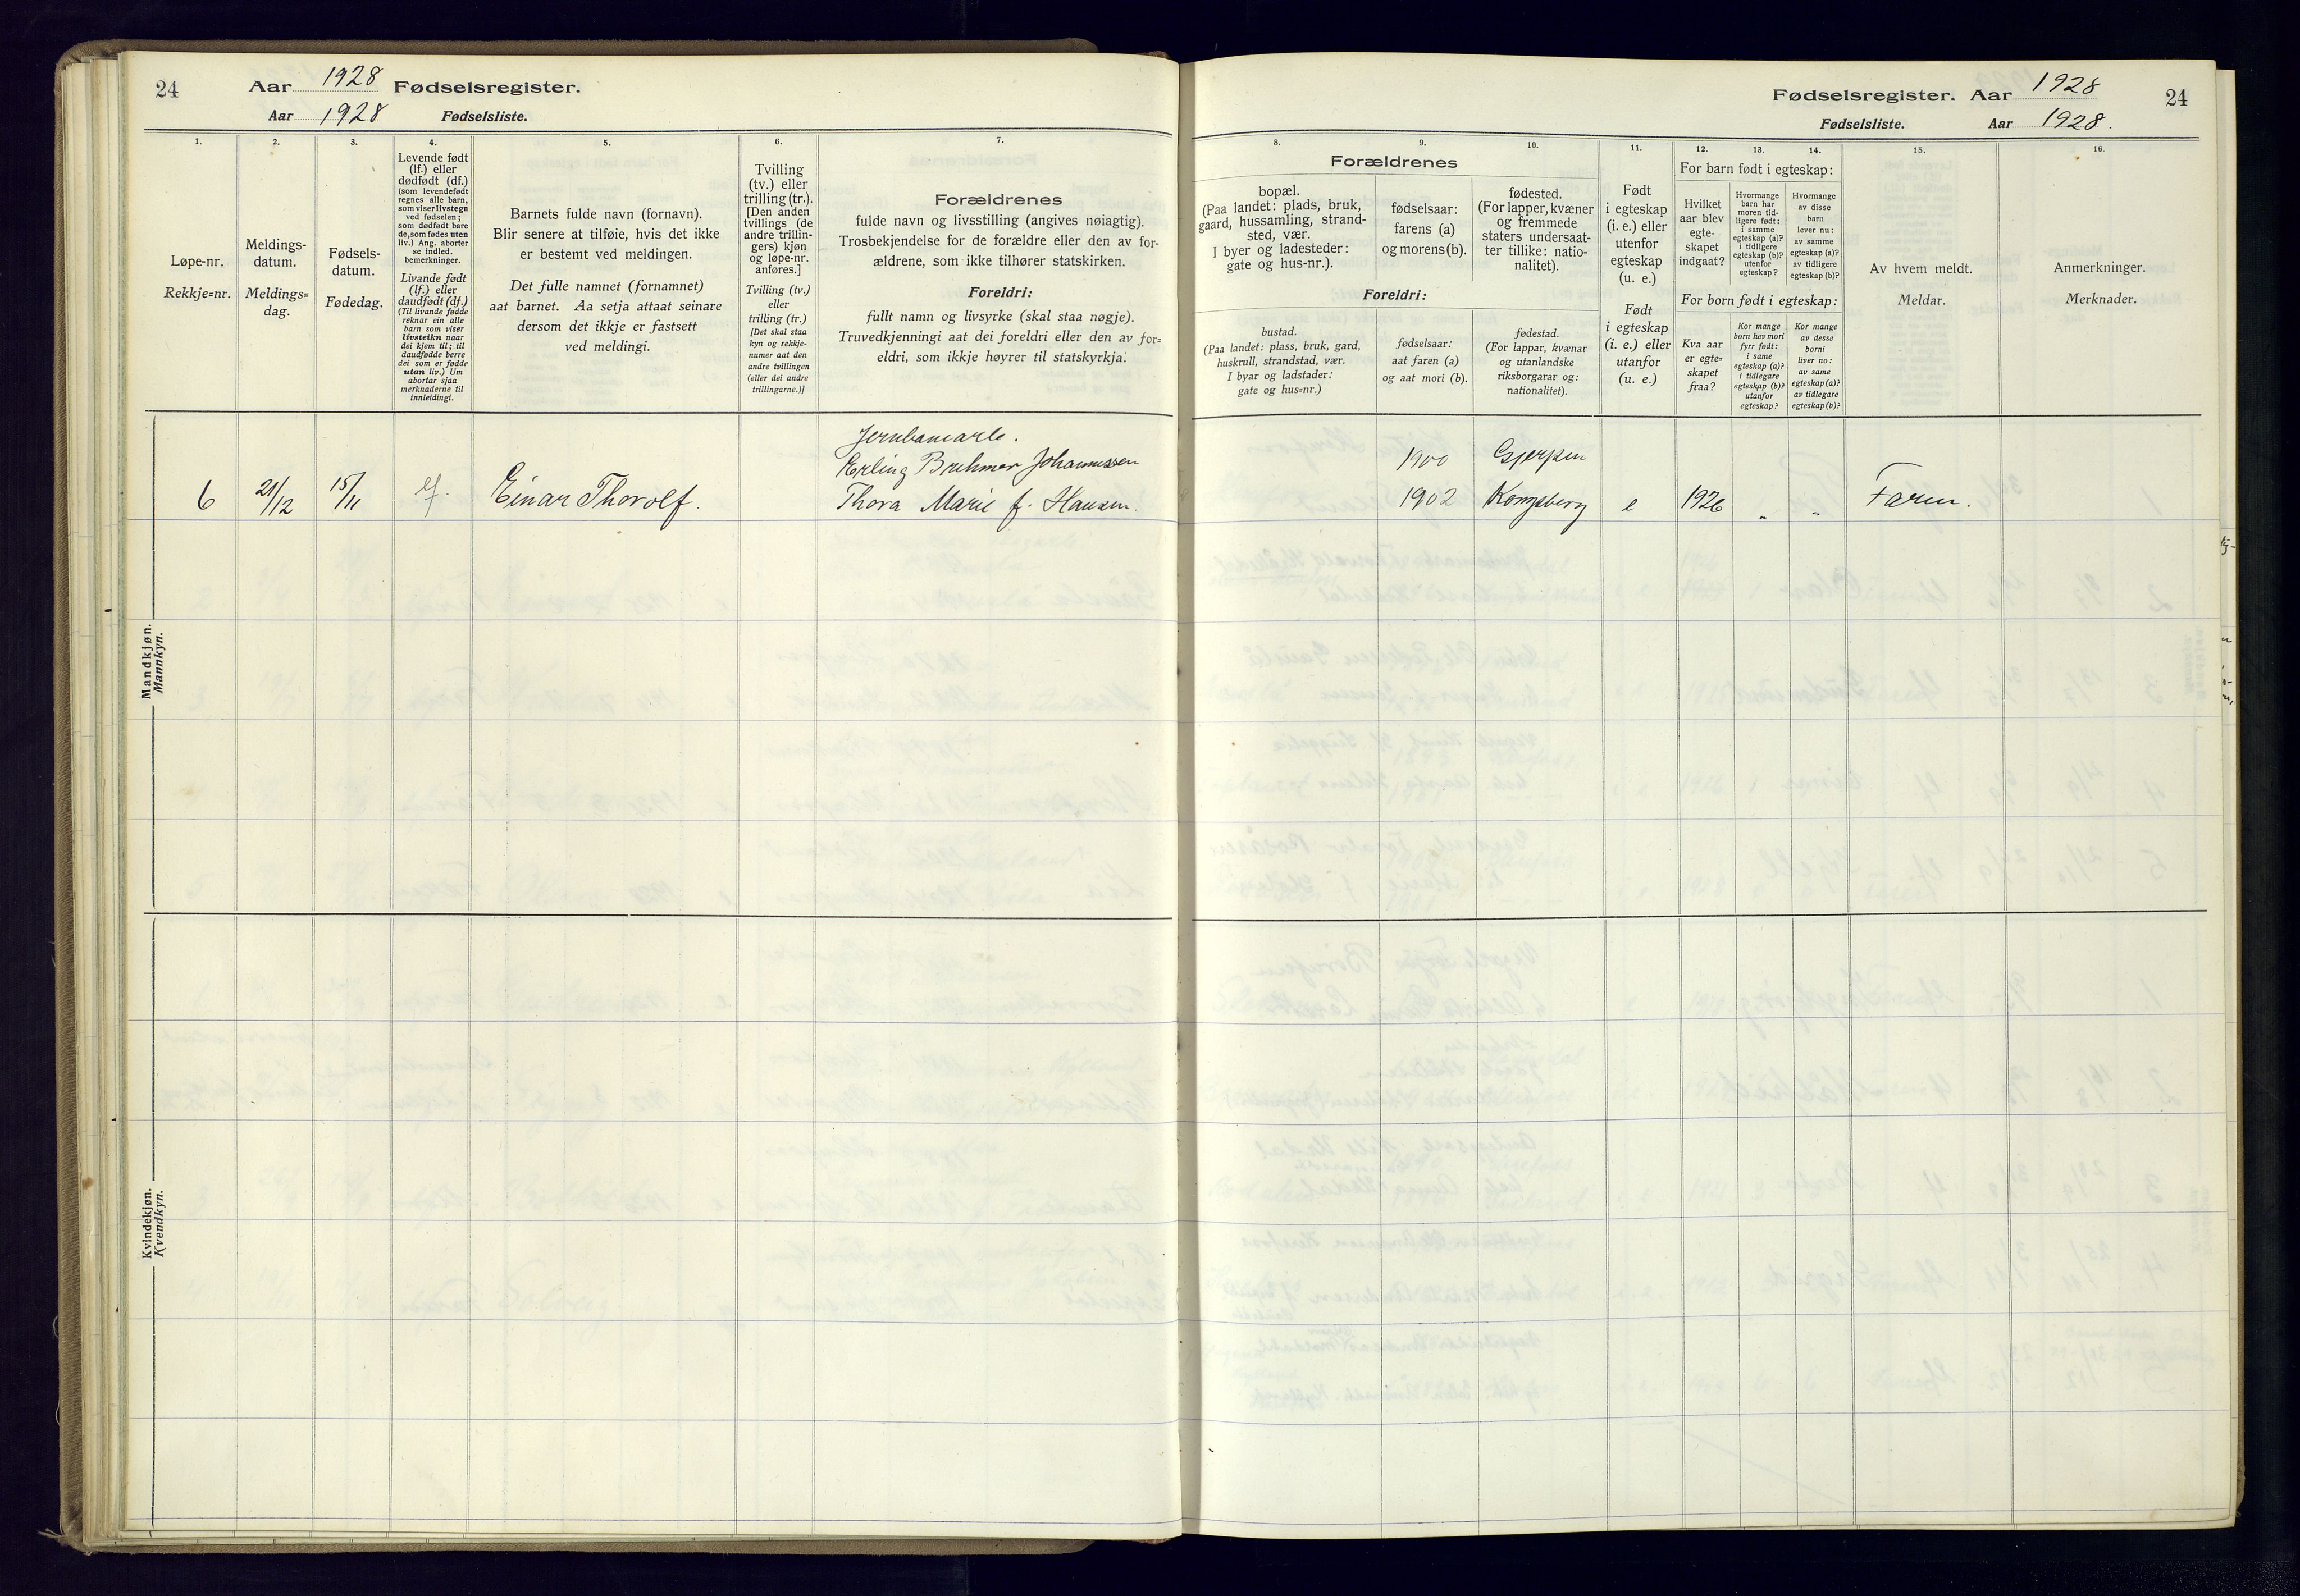 24
Aar 1928 Fødselsregister.
Aar 1928 Fødselsliste.
1.
Løpe-nr.
Rekkje=nr.
2.
Meldings-
datum.
Meldings=
dag.
3.
Fødsels-
datum.
Fødedag.
4.
Levende født
(lf.) eller
dødfødt (df.)
(som levendefødt
regnes alle barn,
som viser livstegn
ved fødselen;
som dødfødt bare
de, som fødes uten
liv.) Ang. aborter
se indled.
bemerkninger.
Livande født
(lf.) eller
daudfødt (df.)
(Til livande fødde
reknar ein alle
barn som viser
livsteikn naar
dei kjem til; til
daudfødde berre
dei som er fødde
utan liv.) Um
abortar sjaa
merknaderne til
innleidingi.
5.
Barnets fulde navn (fornavn).
Blir senere at tilføie, hvis det ikke
er bestemt ved meldingen.
Det fulle namnet (fornamnet)
aat barnet. Aa setja attaat seinare
dersom det ikkje er fastsett
ved meldingi.
6.
Tvilling
(tv.) eller
trilling (tr.).
[Den anden
tvillings (de
andre trillin-
gers) kjøn
og løpe-nr.
anføres.]
Tvilling (tv.)
eller
trilling (tr.)
[Det skal staa
kyn og rekkje-
numer aat den
andre tvillingen
(eller dei andre
trillingarne.)]
7.
Forældrenes
fulde navn og livsstilling (angives nøiagtig).
Trosbekjendelse for de forældre eller den av for-
ældrene, som ikke tilhører statskirken.
Foreldri:
fullt namn og livsyrke (skal staa nøgje).
Truvedkjenningi aat dei foreldri eller den av for=
eldri, som ikkje høyrer til statskyrkja.
Mandkjøn.
Mannkyn.
6 21/12 15/11 lf. Einar Thorolf.
Jernbanearb.
Erling Brehmer Johannessen
Thora Marie f. Hansen.
Kvindekjøn.
Kvendkyn.
Fødselsregister. Aar 1928
24
Fødselsliste. Aar 1928.
8.
Forældrenes
bopæl.
(Paa landet: plads, bruk,
gaard, hussamling, strand-
sted, vær.
I byer og ladesteder:
gate og hus-nr.).
Foreldri:
bustad.
(Paa landet: plass, bruk, gard,
huskrull, strandstad, vær.
I byar og ladstader:
gate og hus=nr.)
9.
fødselsaar:
farens (a)
og morens (b).
fødselsaar:
aat faren (a)
og aat mori (b).
10.
fødested.
(For lapper, kvæner
og fremmede
staters undersaat-
ter tillike: natio-
nalitet).
fødestad.
(For lappar, kvænar
og utanlandske
riksborgarar og:
nationalitet).
11.
Født
i egteskap
(i. e.) eller
utenfor
egteskap
(u. e.)
Født
i egteskap
(i. e.) eller
utanfor
(u. e.)
For barn født i egteskap:
12.
Hvilket
aar blev
egte-
skapet
indgaat?
For born født i egteskap:
Kva aar
er egte=
skapet
fraa?
13.
Hvormange
barn har
moren tid-
ligere født:
i samme
egteskap (a)?
i tidligere
egteskap (b)?
utenfor
egteskap?
Kor mange
born hev mori
fyrr født:
i same
egteskap (a)?
i tidlegare
egteskap (b)?
utanfor
egteskap?
14.
Hvormange
av disse
barn
lever nu:
av samme
egteskap (a)?
av tidligere
egteskap (b)?
Kor mange
av desse
borni
liver no:
av same
egteskap (a)?
av tidlegare
egteskap (b)?
15.
Av hvem meldt.
Meldar.
16.
Anmerkninger.
Merknader.
1900 Gjerpen
1902 Kongsberg e 1926 " " Faren.